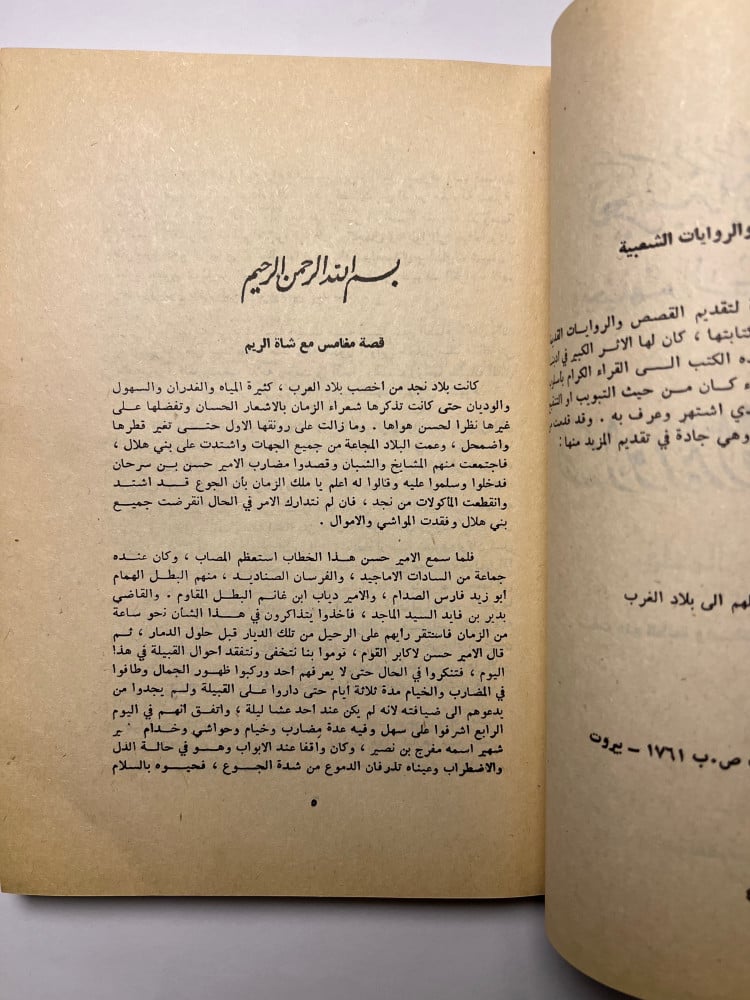 بسم الله الرحمن الرحيم
قصة مغامس مع شاة الريم
كانت بلاد نجد من اخصب بلاد العرب ، كثيرة المياه والغدران والسهول
والوديان حتى كانت تذكرها شعراء الزمان بالاشعار الحسان وتفضلها على
غيرها نظرا لحسن هواها . وما زالت على رونقها الاول حتى تغير قطرها
واضمحل ، وعمت البلاد المجاعة من جميع الجهات واشتدت على بني هلال ،
فاجتمعت منهم المشايخ والشبان وقصدوا مضارب الامير حسن بن سرحان
فدخلوا وسلموا عليه وقالوا له اعلم يا ملك الزمان بأن الجوع قد اشتد
وانقطعت المأكولات من نجد ، فان لم نتدارك الامر في الحال انقرضت جميع
بني هلال وفقدت المواشي والاموال .
فلما سمع الامير حسن هذا الخطاب استعظم المصاب ، وكان عنده
جماعة من السادات الاماجيد ، والفرسان الصناديد ، منهم البطل الهمام
ابو زيد فارس الصدام ، والامير دياب ابن غانم البطل المقاوم . والقاضي
بدير بن فايد السيد الماجد ، فأخذوا يتذاكرون في هذا الشان نحو ساعة
من الزمان فاستقر رأيهم على الرحيل من تلك الديار قبل حلول الدمار ، ثم
قال الامير حسن لاكابر القوم ، نوموا بنا نتخفى ونتفقد أحوال القبيلة في هذا
اليوم ، فتنكروا في الحال حتى لا يعرفهم أحد وركبوا ظهور الجمال وطافوا
في المضارب والخيام مدة ثلاثة أيام حتى داروا على القبيلة ولم يجدوا من
يدعوهم الى ضيافته لانه لم يكن عند أحد عشا ليلة ؛ واتفق انهم في اليوم
الرابع اشرفوا على سهل وفيه عدة مضارب وخيام وحواشي وخدام ير
شهير اسمه مفرج بن نصير ، وكان واقفا عند الابواب وهو في حالة الذل
والاضطراب وعيناه تذرفان الدموع من شدة الجوع ، فحيوه بالسلام
٥
والروايات الشعبية
لتقديم القصص والروايات
كتابتها ، كان لها الاثر الكبير في
ده الكتب الى القراء الكرام
ء كان من حيث التبويب او
دي اشتهر وعرف به . وقد
وهي جادة في تقديم المزيد منها :
لهم الى بلاد الغرب
ص.ب ١٧٦١ - بيروت